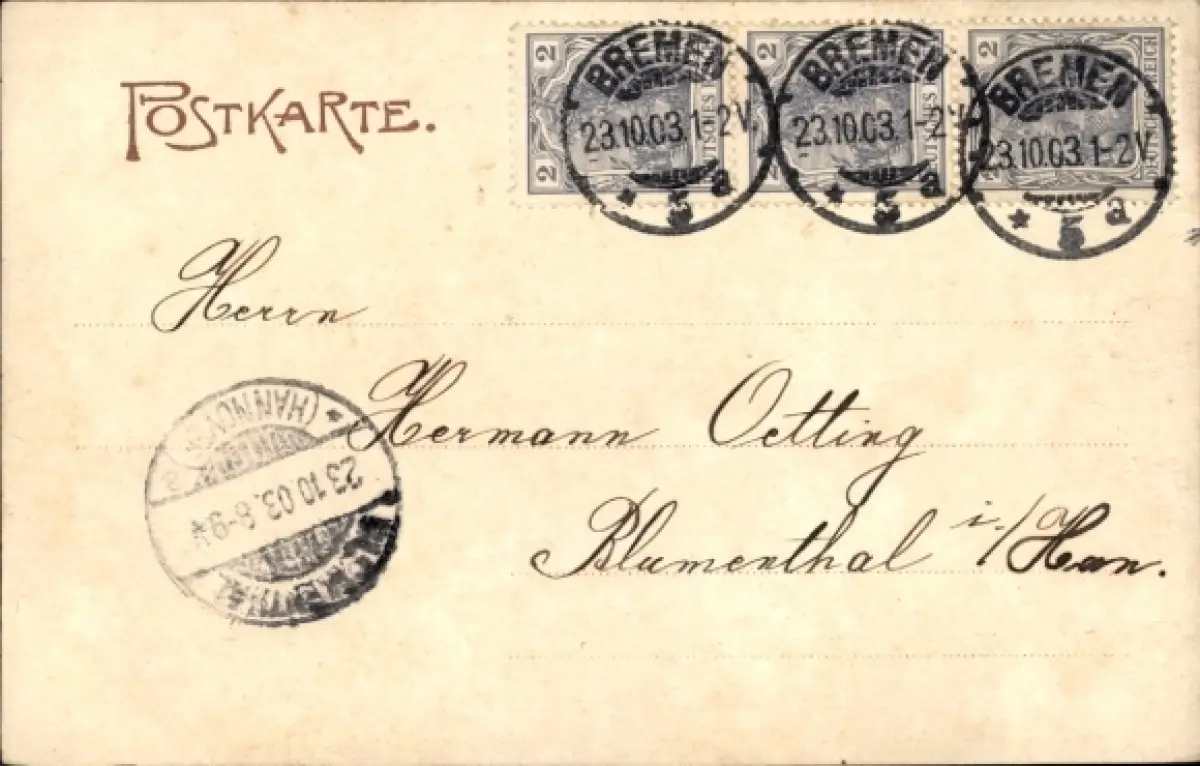 POSTKARTE.
2 2 DEUTSCHES REICH
2 2 DEUTSCHES REICH
2 2 DEUTSCHES REICH
BREMEN
23.10.03. 1-2V.
* 5 a
BREMEN
23.10.03. 1-2V.
* 5 a
BREMEN
23.10.03. 1-2V.
* 5 a
Herrn
Hermann Oetting
Blumenthal i./Han.
(HANNOV
23.10.03. 8-9